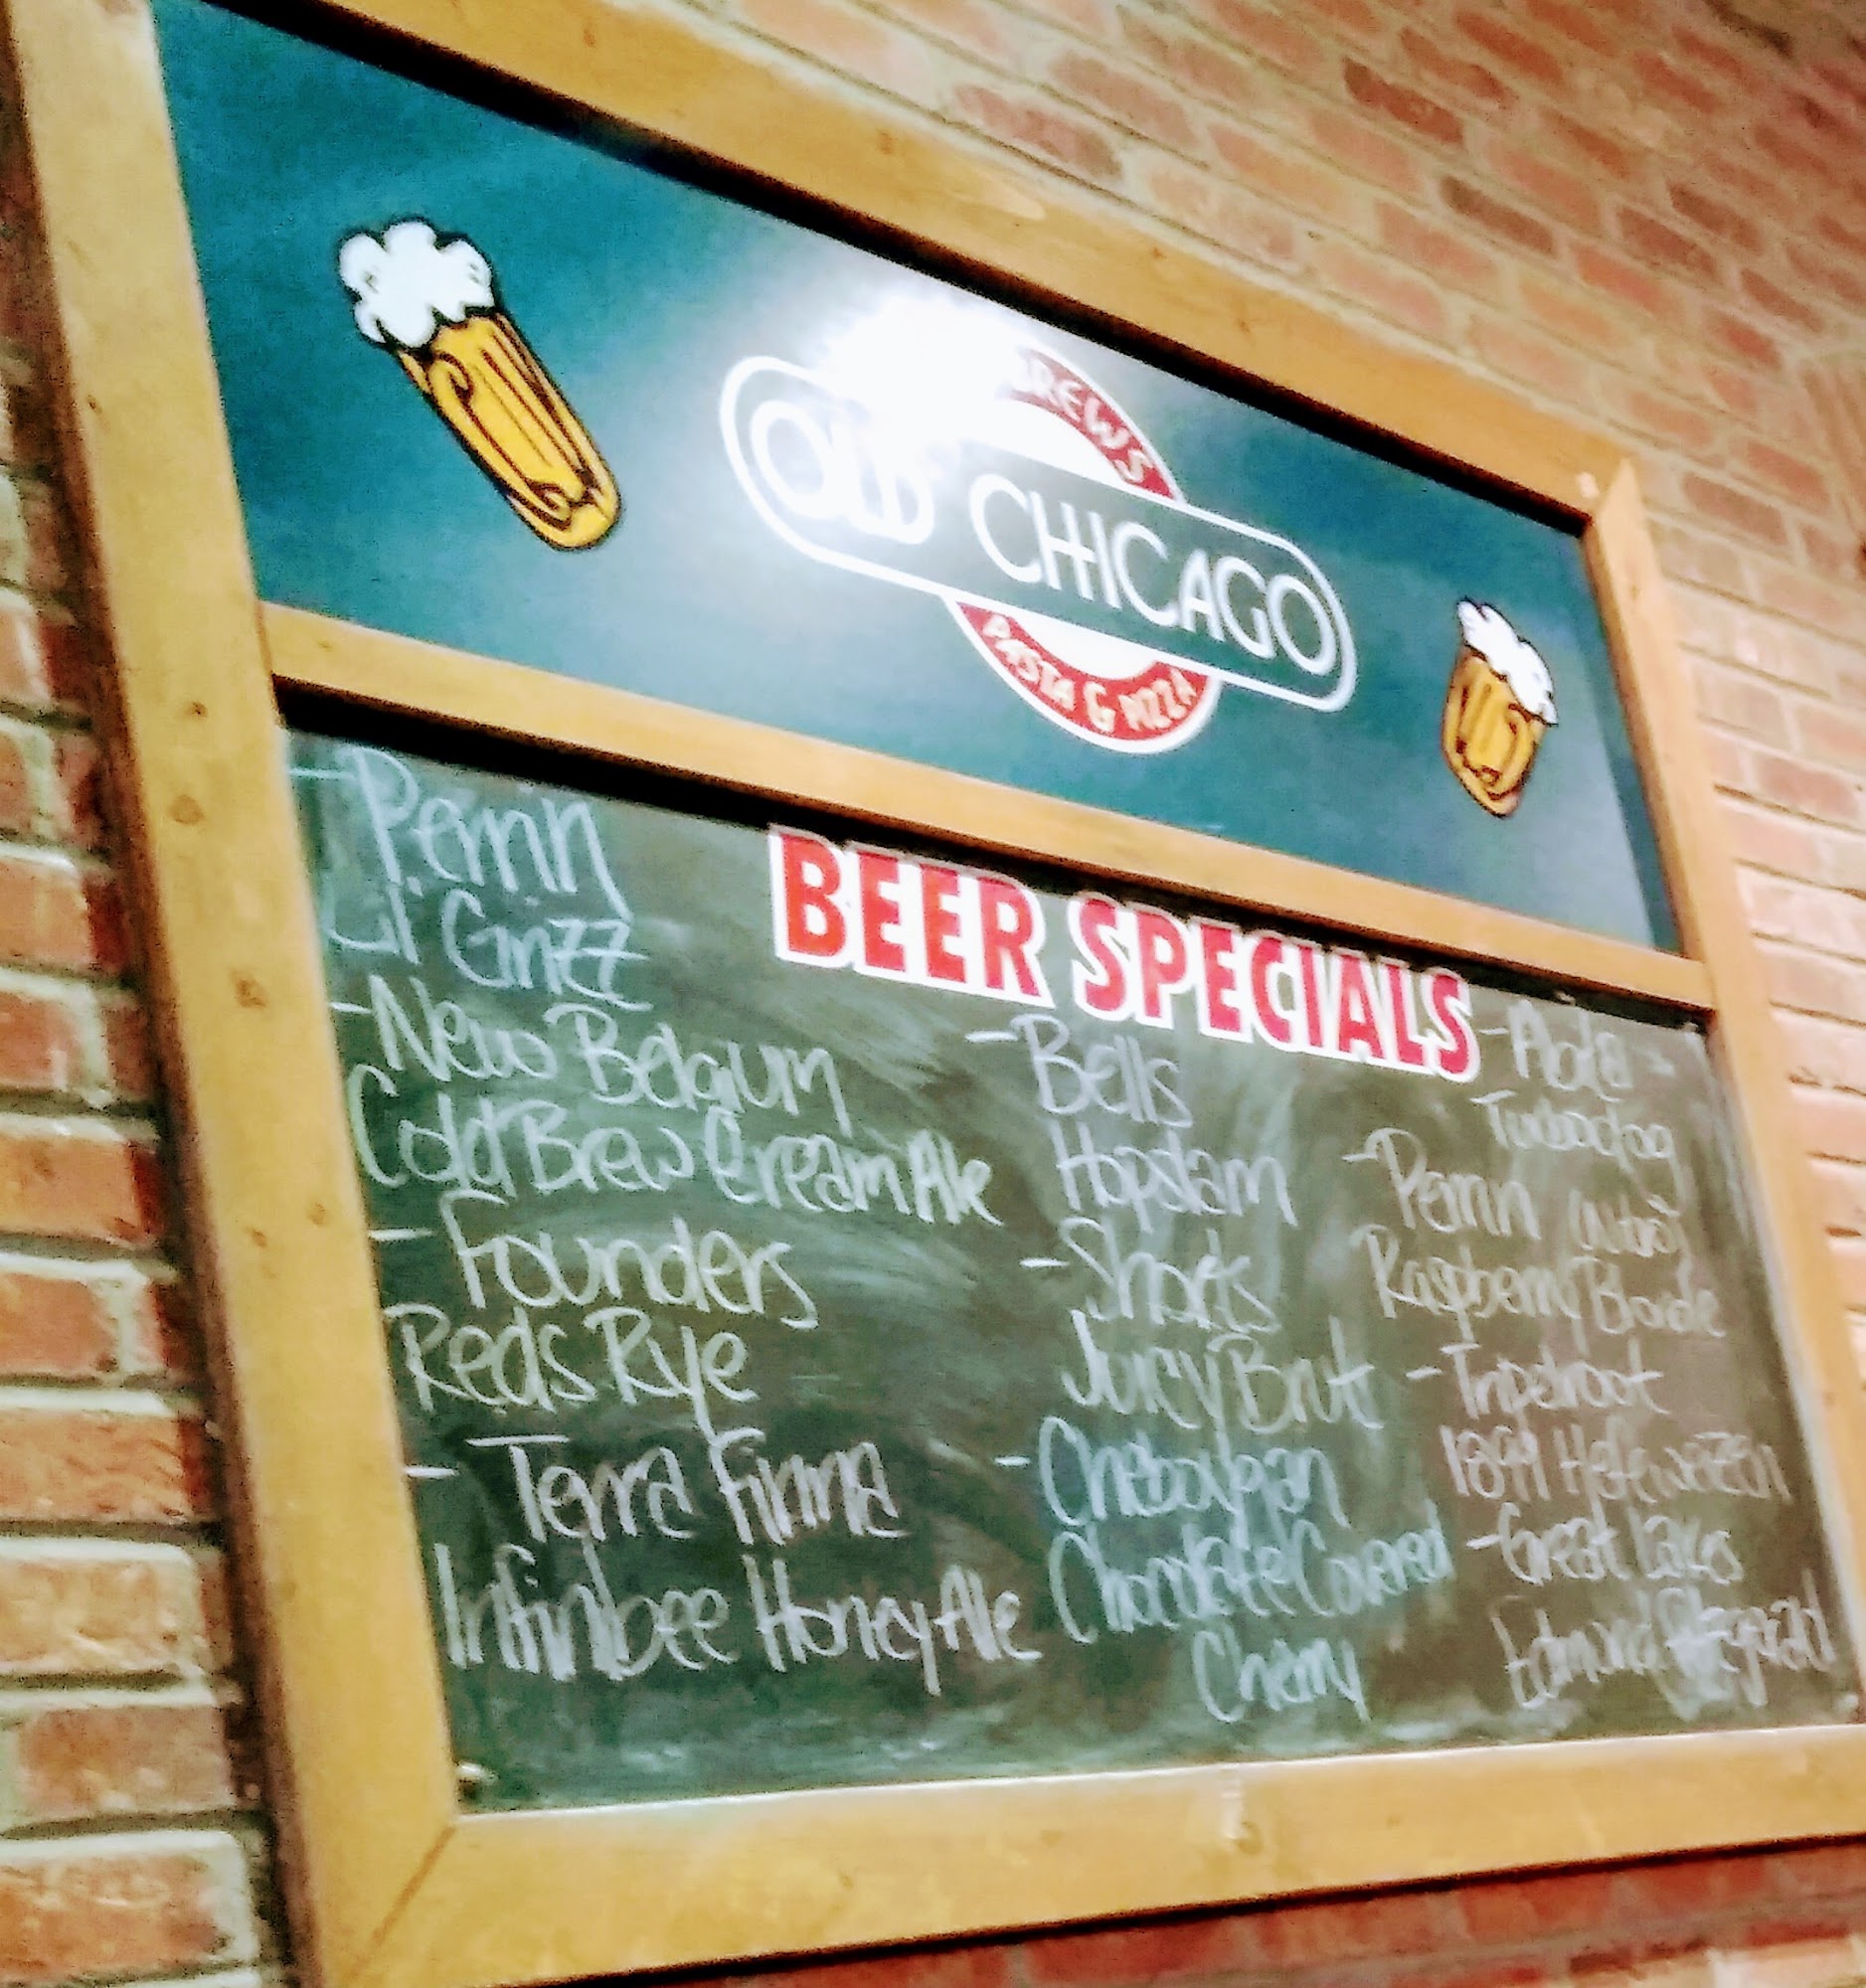 BREWS
OLD CHICAGO
PASTA & PIZZA
BEER SPECIALS
- Perrin
Lil Grizz
- New Belgium
Cold Brew Cream Ale
- Founders
Reds Rye
- Terra Firma
Infinibee Honey Ale
- Bells
Hopslam
- Shorts
Juicy Brut
- Cheboygan
Chocolate Covered
Cherry
- Abita
Turbodog
- Perrin (Nitro)
Raspberry Blonde
- Tripelroot
1899 Hefeweizen
- Great Lakes
Edmund Fitzgerald